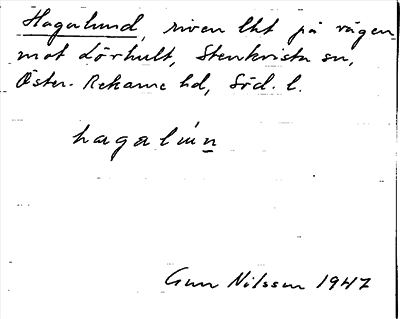 Hagalund, riven lht på vägen
mot dörhult, Stenkvista sn,
Öster-Rekarne hd, Söd. l.
hagalún
Gun Nilsson 1947